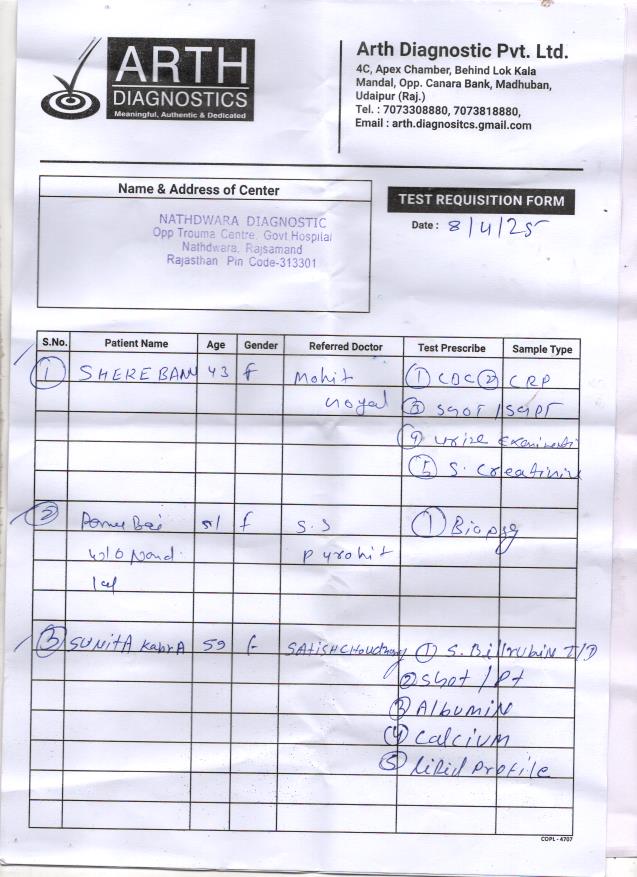 ARTH
DIAGNOSTICS
Meaningful, Authentic & Dedicated
Arth Diagnostic Pvt. Ltd.
4C, Apex Chamber, Behind Lok Kala
Mandal, Opp. Canara Bank, Madhuban,
Udaipur (Raj.)
Tel. : 7073308880, 7073818880,
Email : arth.diagnositcs.gmail.com
Name & Address of Center
NATHDWARA DIAGNOSTIC
Opp Trouma Centre, Govt Hospilal
Nathdwara, Rajsamand
Rajasthan Pin Code-313301
TEST REQUISITION FORM
Date : 8/4/25
S.No. Patient Name Age Gender Referred Doctor Test Prescribe Sample Type
1 SHERE BANU 43 f Mohit ① CBC ② CRP
③ SGOT / SGPT
④ Urine
⑤ S. Creatinine
2 Bai f S.S ① Biopsy
w/o Nand Purohit
lal
3 SUNITA KabrA 59 f SATISH Choudhary ① S. BillrubiN T/D
② SGot / Pt
③ AlbumiN
④ CalciuM
⑤ liPid Profile
COPL - 4707